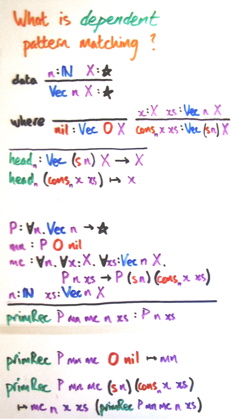 What is dependent
pattern matching?
data n:ℕ X:★
Vec n X:★
where
nil : Vec O X
x:X xs:Vec n X
consₙ x xs : Vec (sn) X
headₙ : Vec (sn) X → X
headₙ (consₙ x xs) ↦ x
P:∀n.Vec n → ★
mn : P O nil
mc : ∀n.∀x:X.∀xs:Vec n X.
P n xs → P (sn)(consₙ x xs)
n:ℕ xs:Vec n X
primRec P mn mc n xs : P n xs
primRec P mn mc O nil ↦ mn
primRec P mn mc (sn)(consₙ x xs)
↦ mc n x xs (primRec P mn mc n xs)